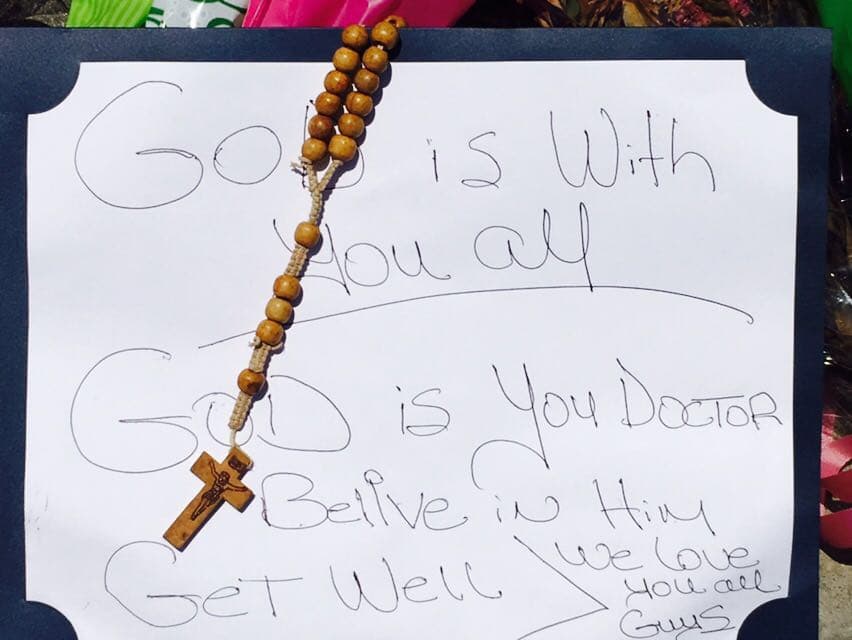 GOD is With
you all
GOD is You DOCTOR
Belive in Him
GeT Well
We love
you all
Guys